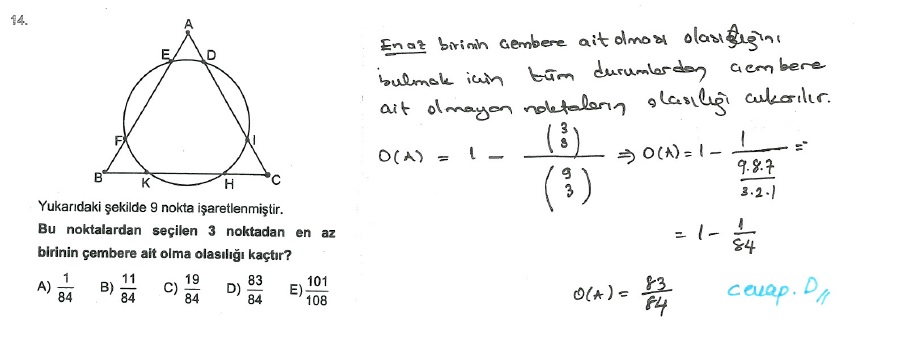 14.
A
E
D
F
I
B
K
H
C
Yukarıdaki şekilde 9 nokta işaretlenmiştir.
Bu noktalardan seçilen 3 noktadan en az
birinin çembere ait olma olasılığı kaçtır?
A) 1/84 B) 11/84 C) 19/84 D) 83/84 E) 101/108
En az birinin çembere ait olması olasılığını
bulmak için tüm durumlardan çembere
ait olmayan noktaların olasılığı çıkarılır.
O(A) = 1 - (3 3)/(9 3) ⇒ O(A) = 1 - 1/(9.8.7/3.2.1) =
= 1 - 1/84
O(A) = 83/84 cevap. D//